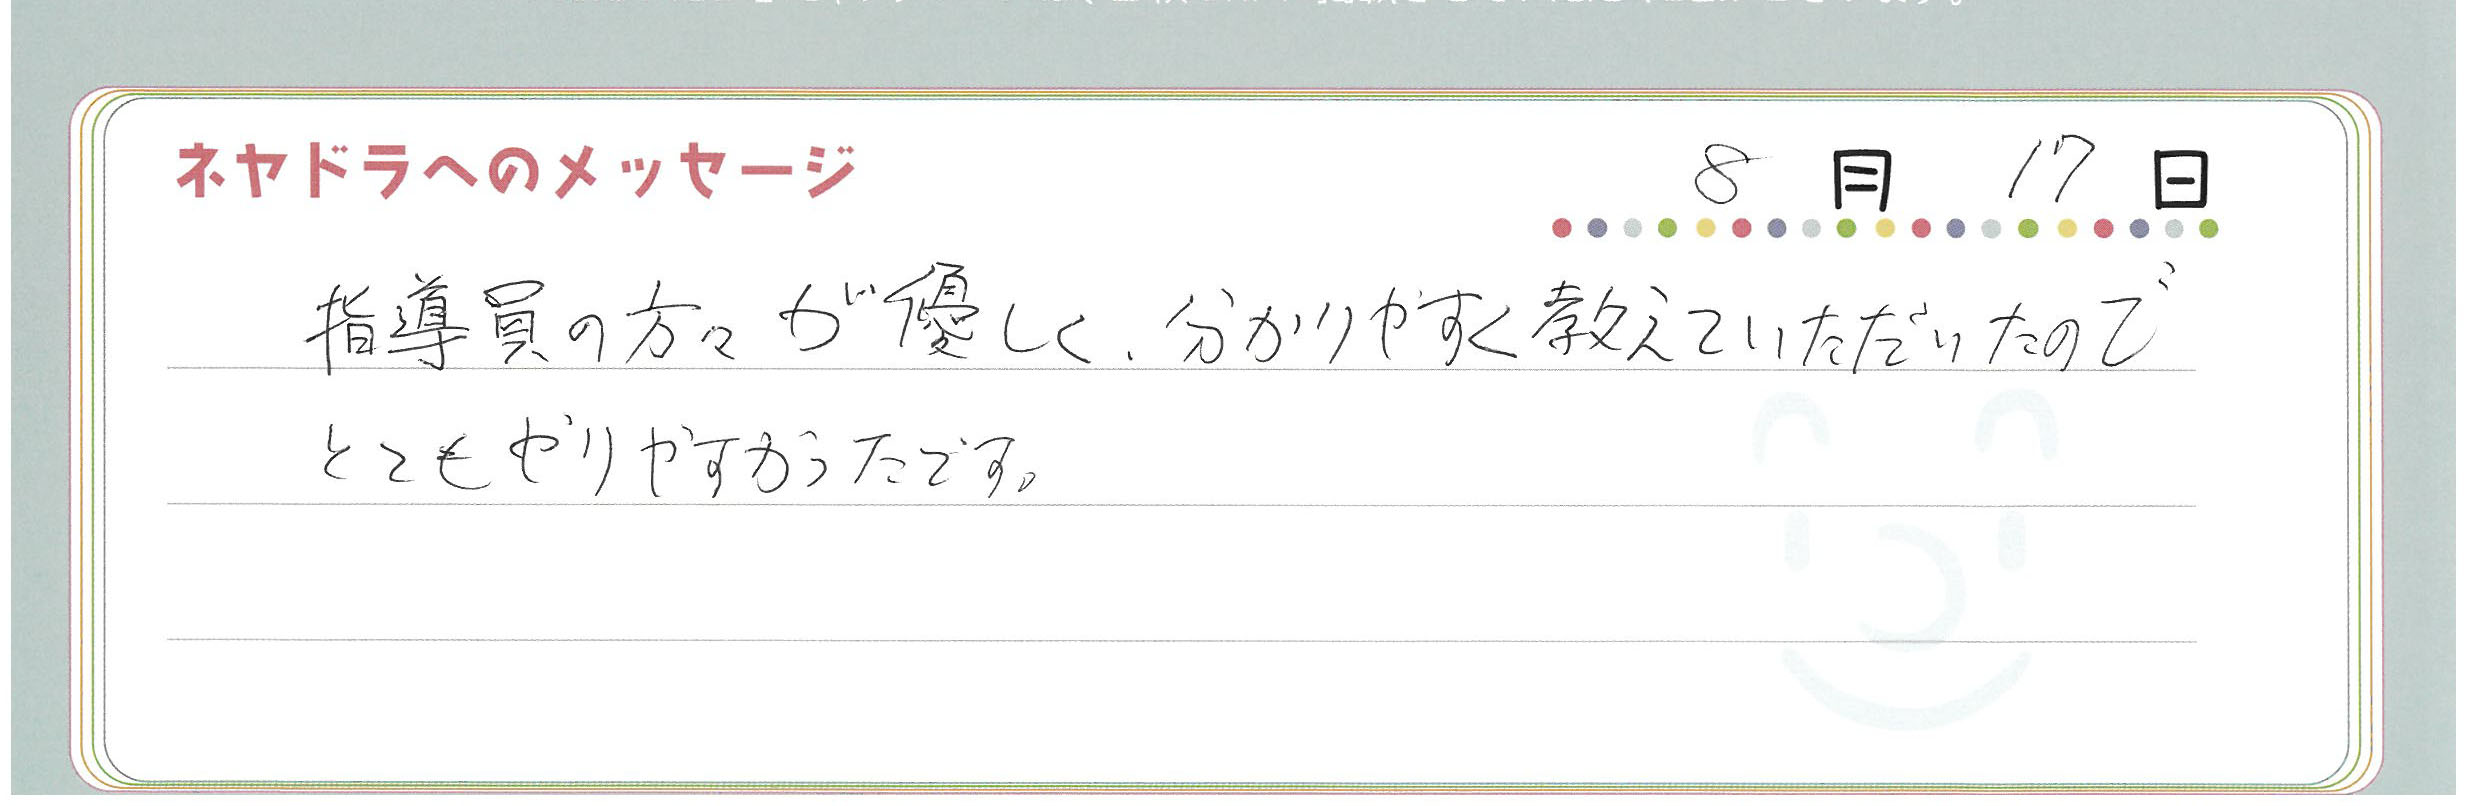 ネヤドラへのメッセージ
8月17日
指導員の方々が優しく、分かりやすく教えていただいたので
とてもやりやすかったです。